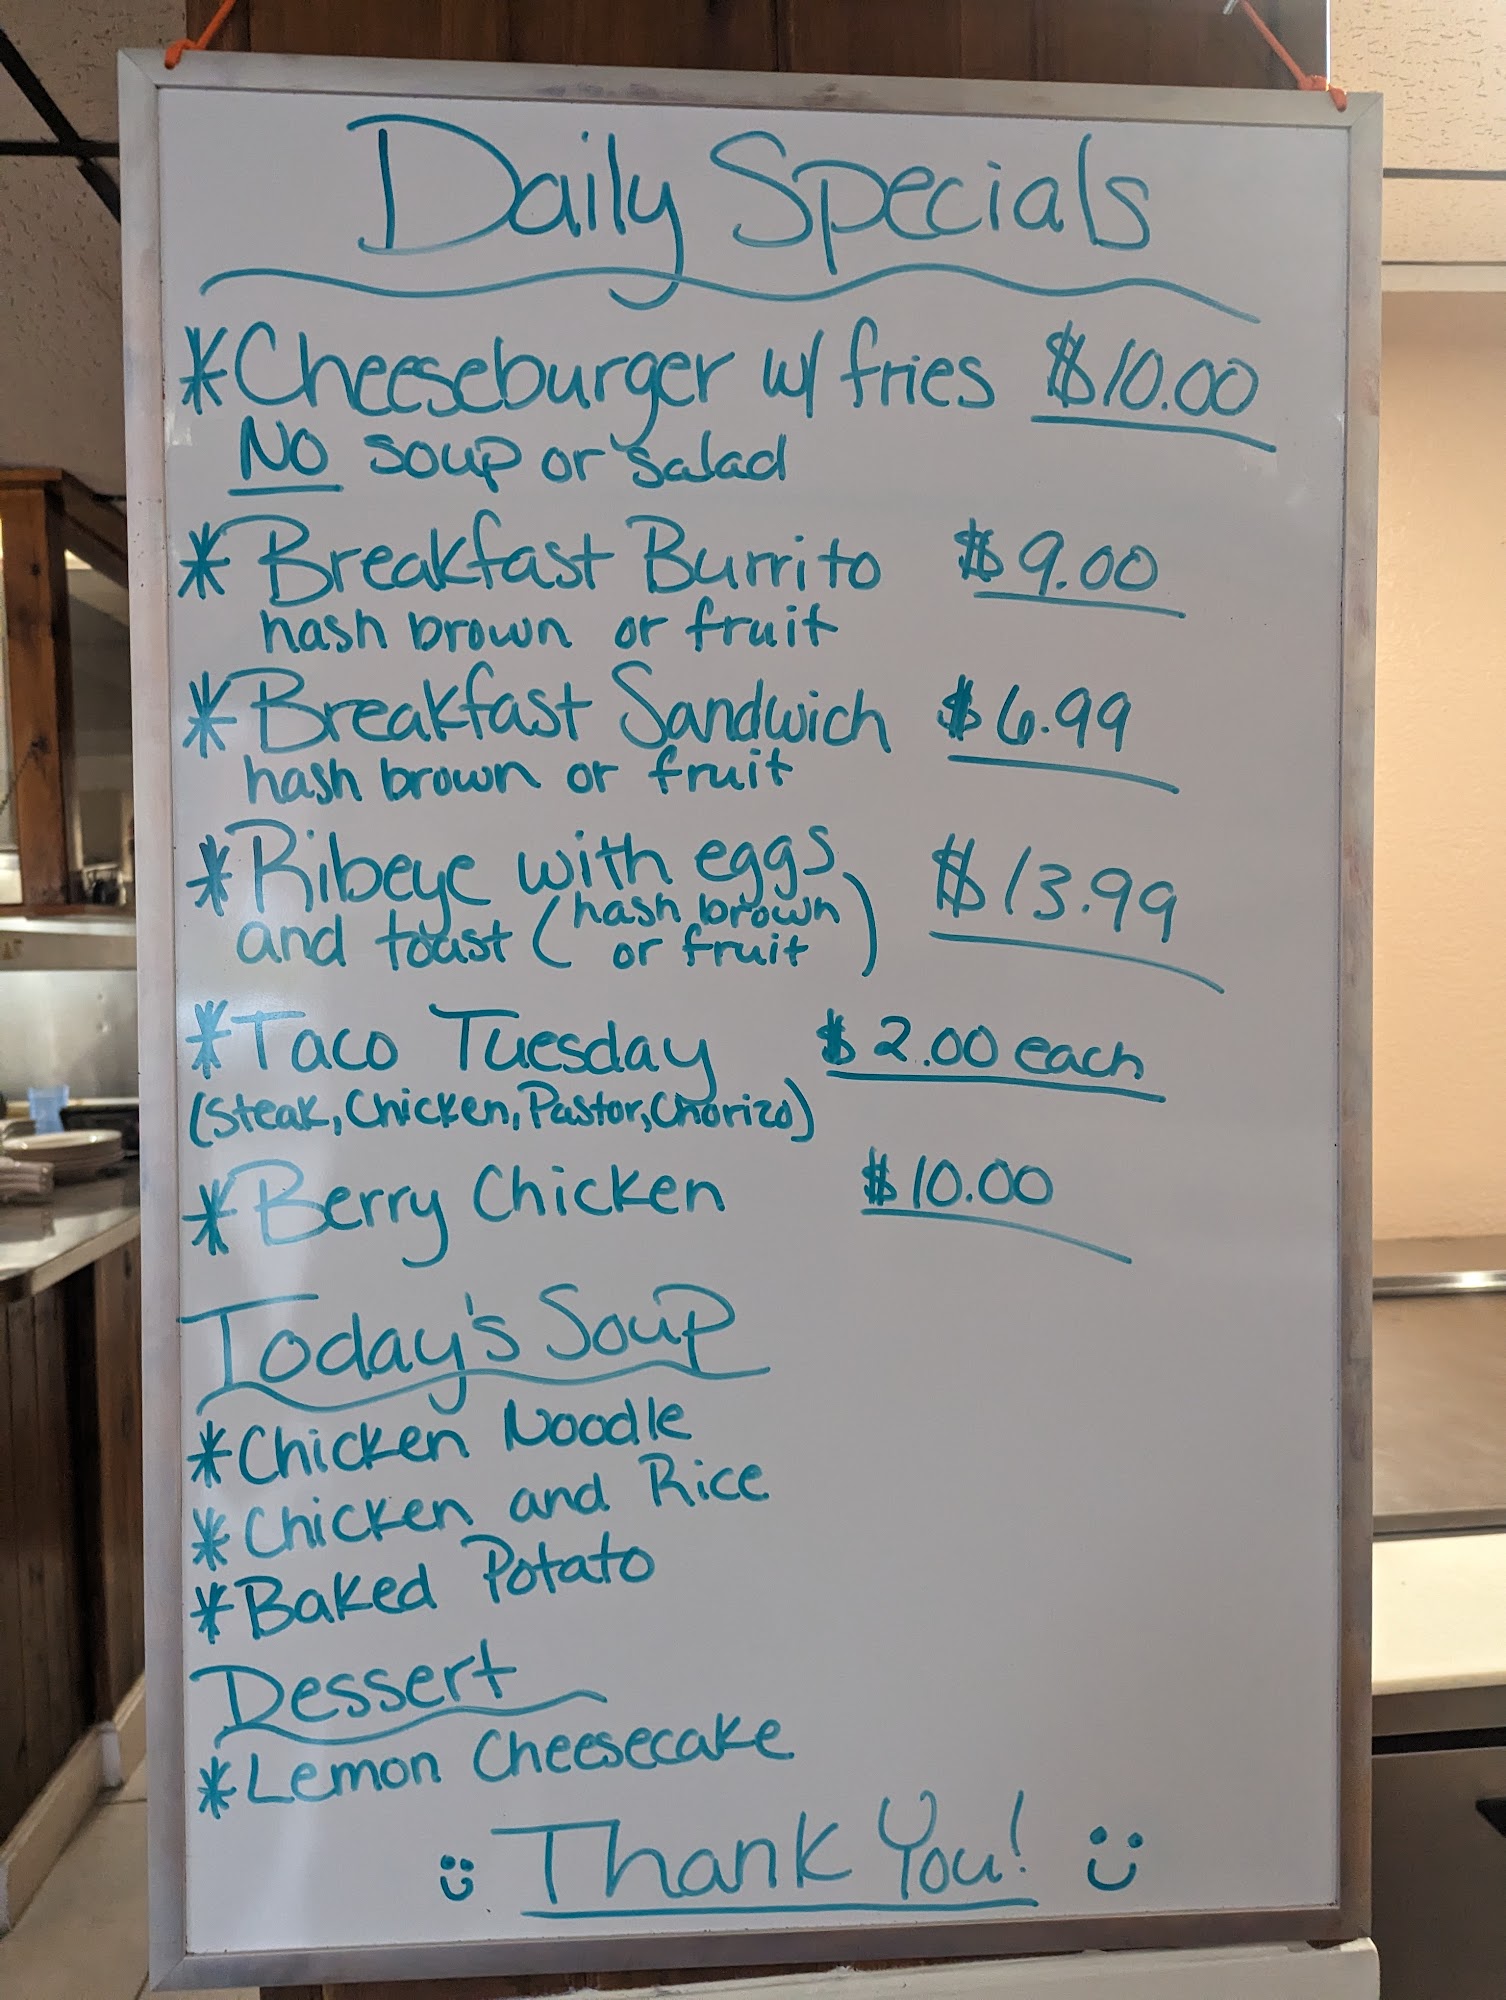 Daily Specials
*Cheeseburger w/ fries $10.00
NO soup or salad
*Breakfast Burrito $9.00
hash brown or fruit
*Breakfast Sandwich $6.99
hash brown or fruit
*Ribeye with eggs $13.99
and toast (hash brown
or fruit)
*Taco Tuesday $2.00 each
(Steak, Chicken, Pastor, Chorizo)
*Berry Chicken $10.00
Today's Soup
*Chicken Noodle
*Chicken and Rice
*Baked Potato
Dessert
*Lemon Cheesecake
Thank You!